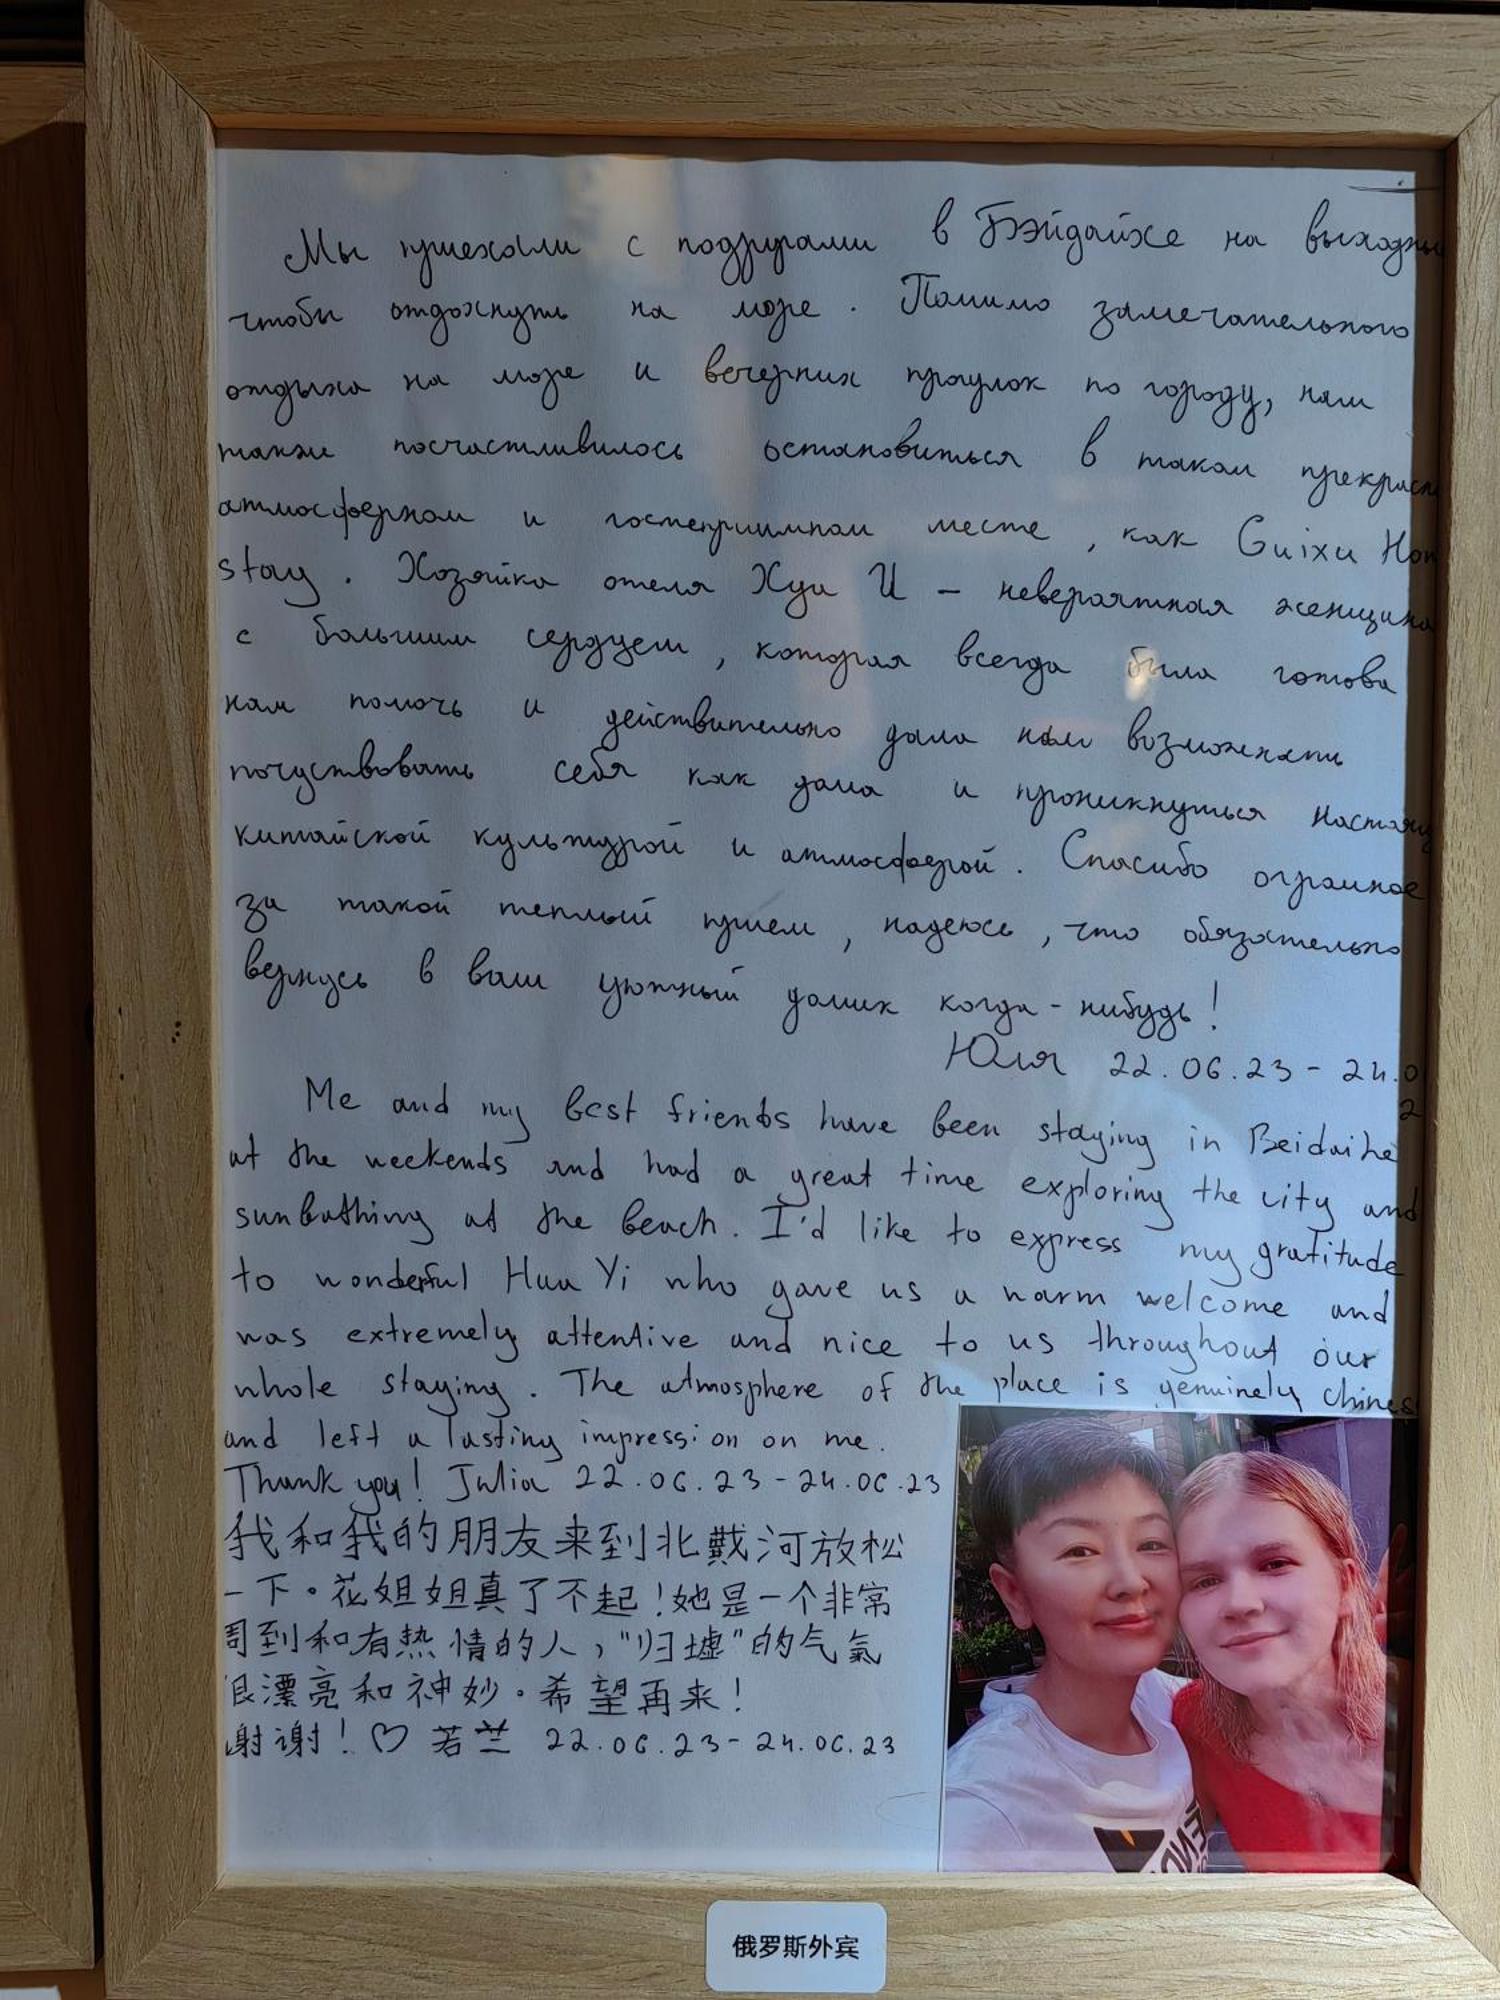 Мы приехали с подругами в Бэйдайхе на выходны
чтобы отдохнуть на море. Помимо замечательного
отдыха на море и вечерних прогулок по городу, нам
также посчастливилось остановиться в таком прекрасн
атмосферном и гостеприимном месте, как Guixu Hom
stay. Хозяйка отеля Хуа И - невероятная женщина
с большим сердцем, которая всегда была готова
нам помочь и действительно дала нам возможность
почуствовать себя как дома и проникнуться настоящ
китайской культурой и атмосферой. Спасибо огромное
за такой теплый прием, надеюсь, что обязательно
вернусь в ваш уютный домик когда-нибудь!
Юля 22.06.23 - 24.0
2
Me and my best friends have been staying in Beidaihe
at the weekends and had a great time exploring the city and
sunbathing at the beach. I'd like to express my gratitude
to wonderful Hua Yi who gave us a warm welcome and
was extremely attentive and nice to us throughout our
whole staying. The atmosphere of the place is genuinely chines
and left a lasting impression on me.
Thank you! Julia 22.06.23 - 24.06.23
我和我的朋友来到北戴河放松
一下。花姐姐真了不起!她是一个非常
周到和有热情的人,"归墟"的气氛
很漂亮和神妙。希望再来!
谢谢!♡ 若兰 22.06.23 - 24.06.23
俄罗斯外宾